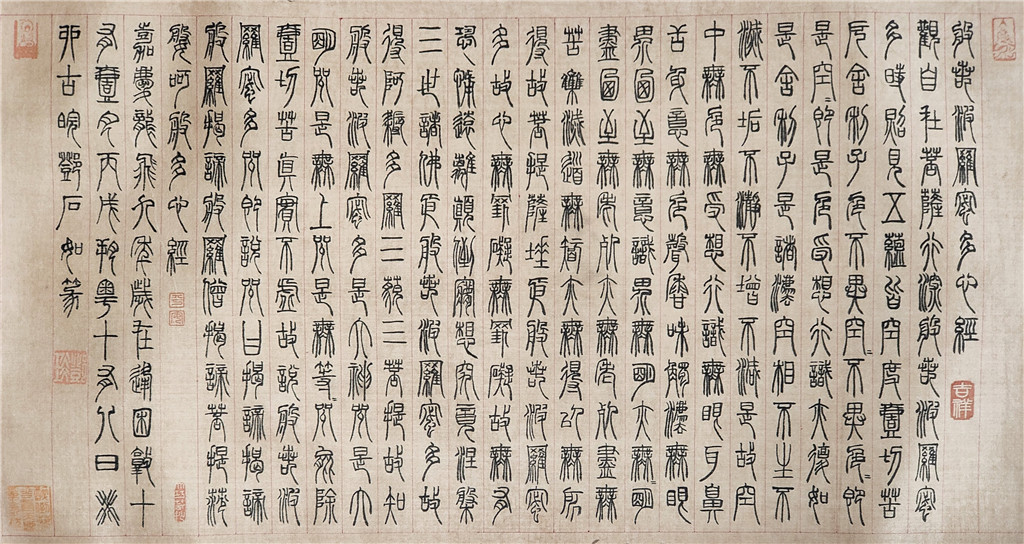 般若波羅蜜多心經
觀自在菩薩行深般若波羅蜜
多時照見五蘊皆空度壹切苦
厄舍利子色不異空〻不異色〻即
是空〻即是色受想行識亦復如
是舍利子是諸法空相不生不
滅不垢不淨不增不減是故空
中無色無受想行識無眼耳鼻
舌身意無色聲香味觸法無眼
界乃至無意識界無明亦無〻明
盡乃至無老死亦無老死盡無
苦集滅道無智亦無得以無所
得故菩提薩埵依般若波羅蜜
多故心無罣礙無罣礙故無有
恐怖遠離顛倒夢想究竟涅槃
三世諸佛依般若波羅蜜多故
得阿耨多羅三藐三菩提故知
般若波羅蜜多是大神咒是大
明咒是無上咒是無等〻咒能除
壹切苦真實不虛故說般若波
羅蜜多咒即說咒曰揭諦揭諦
般羅揭諦般羅僧揭諦菩提薩
婆訶般多心經
嘉慶龍飛九年歲在逢困敦十
有壹月丙戌朔粵十有八日癸
卯古皖鄧石如篆
吉祥